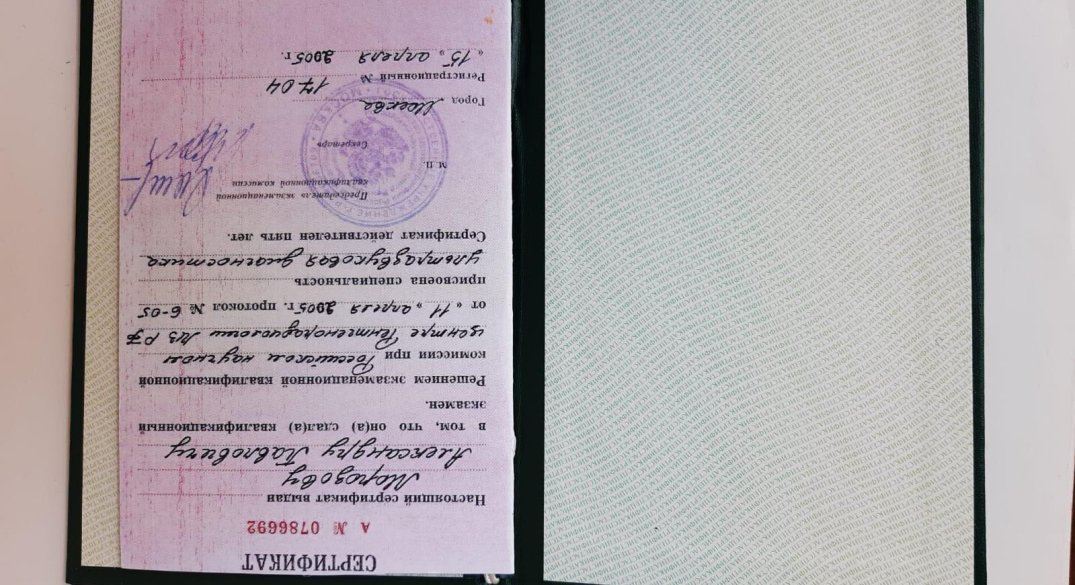 СЕРТИФИКАТ
А № 0786692
Настоящий сертификат выдан
Морозову
Александру Павловичу
в том, что он(а) сдал(а) квалификационный
экзамен.
Решением экзаменационной квалификационной
комиссии при Российском научном
центре Рентгенорадиологии МЗ РФ
от „ 11 „ апреля 2005г. протокол № 6-05
присвоена специальность
ультразвуковая диагностика
Сертификат действителен пять лет.
Председатель экзаменационной
квалификационной комиссии
М. П.
Секретарь
Город Москва
Регистрационный № 1704
„ 15 „ апреля 2005г.